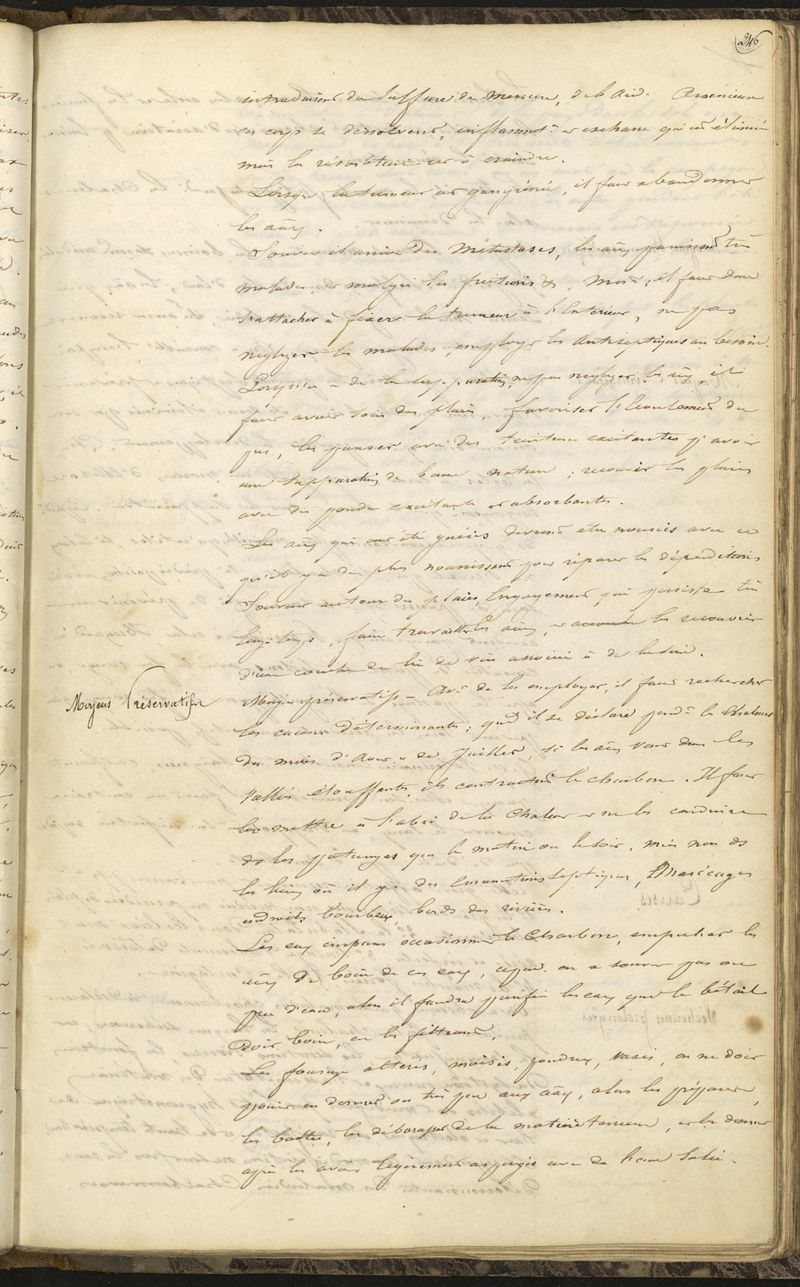 246
introduisent du sulfure de mercure, de l'acide Arsenieux
ces corps se dissolvent, enflamment et eschare qui est éliminée
mais la résorbtion est à craindre.
Lorsque la tumeur est gangrénée, il faut abandonner
les aãx.
Souvent il arrive des Métastases, les aãx paraissent très
malades, et malgré les frictions &, meurt; il faut donc
s'attacher à fixer la tumeur à l'Extérieur, ne pas
négliger les malades, employer les antiseptiques au besoin.
Lorsqu'il y a de la suppuration, ne pas négliger les aãx, il
faut avoir soin des plaies, favoriser l'Ecoulement du
pus, les panser avec des teintures excitantes p' avoir
une suppuration de bonne nature; recouvrir les plaies
avec des poudres excitantes et absorbantes.
Les aãx qui ont été guéris devront être nourris avec ce
qu'il y a de plus nourrissant pour réparer les déperditions
Souvent autour des plaies, Engorgement qui persiste très
longtemps, faire travailler les aãx, et les recouvrir
d'une couche de lie de vin associée à de la suie.
Moyens Préservatifs
Moyens préservatifs – Avt de les employer, il faut rechercher
les causes déterminantes; quand il se déclare pendt les chaleurs
du mois d'Aout et de Juillet, si les aãx sont dans les
vallées étouffantes, ils contractent le charbon. Il faut
les mettre à l'abri de la chaleur et ne les conduire
ds les pâturages que le matin ou le soir, mais non ds
les lieux où il y a des Emanations septiques, Marécages
endroits bourbeux, bords des rivières.
Les eaux impures occasionnent le Charbon, empecher les
aãx de boire de ces eaux, cepend. on a souvent pas ou
peu d'eau, alors il faudra purifier les eaux que le bétail
doit boire, en les filtrant.
Les fourrages altérés, moisis, poudreux, vasés, on ne doit
point en donner ou très peu aux aãx, alors les préparer,
les battre, les débarasser de la matière terreuse, et les donner
après les avoir légèrement aspergés avec de l'eau salée.